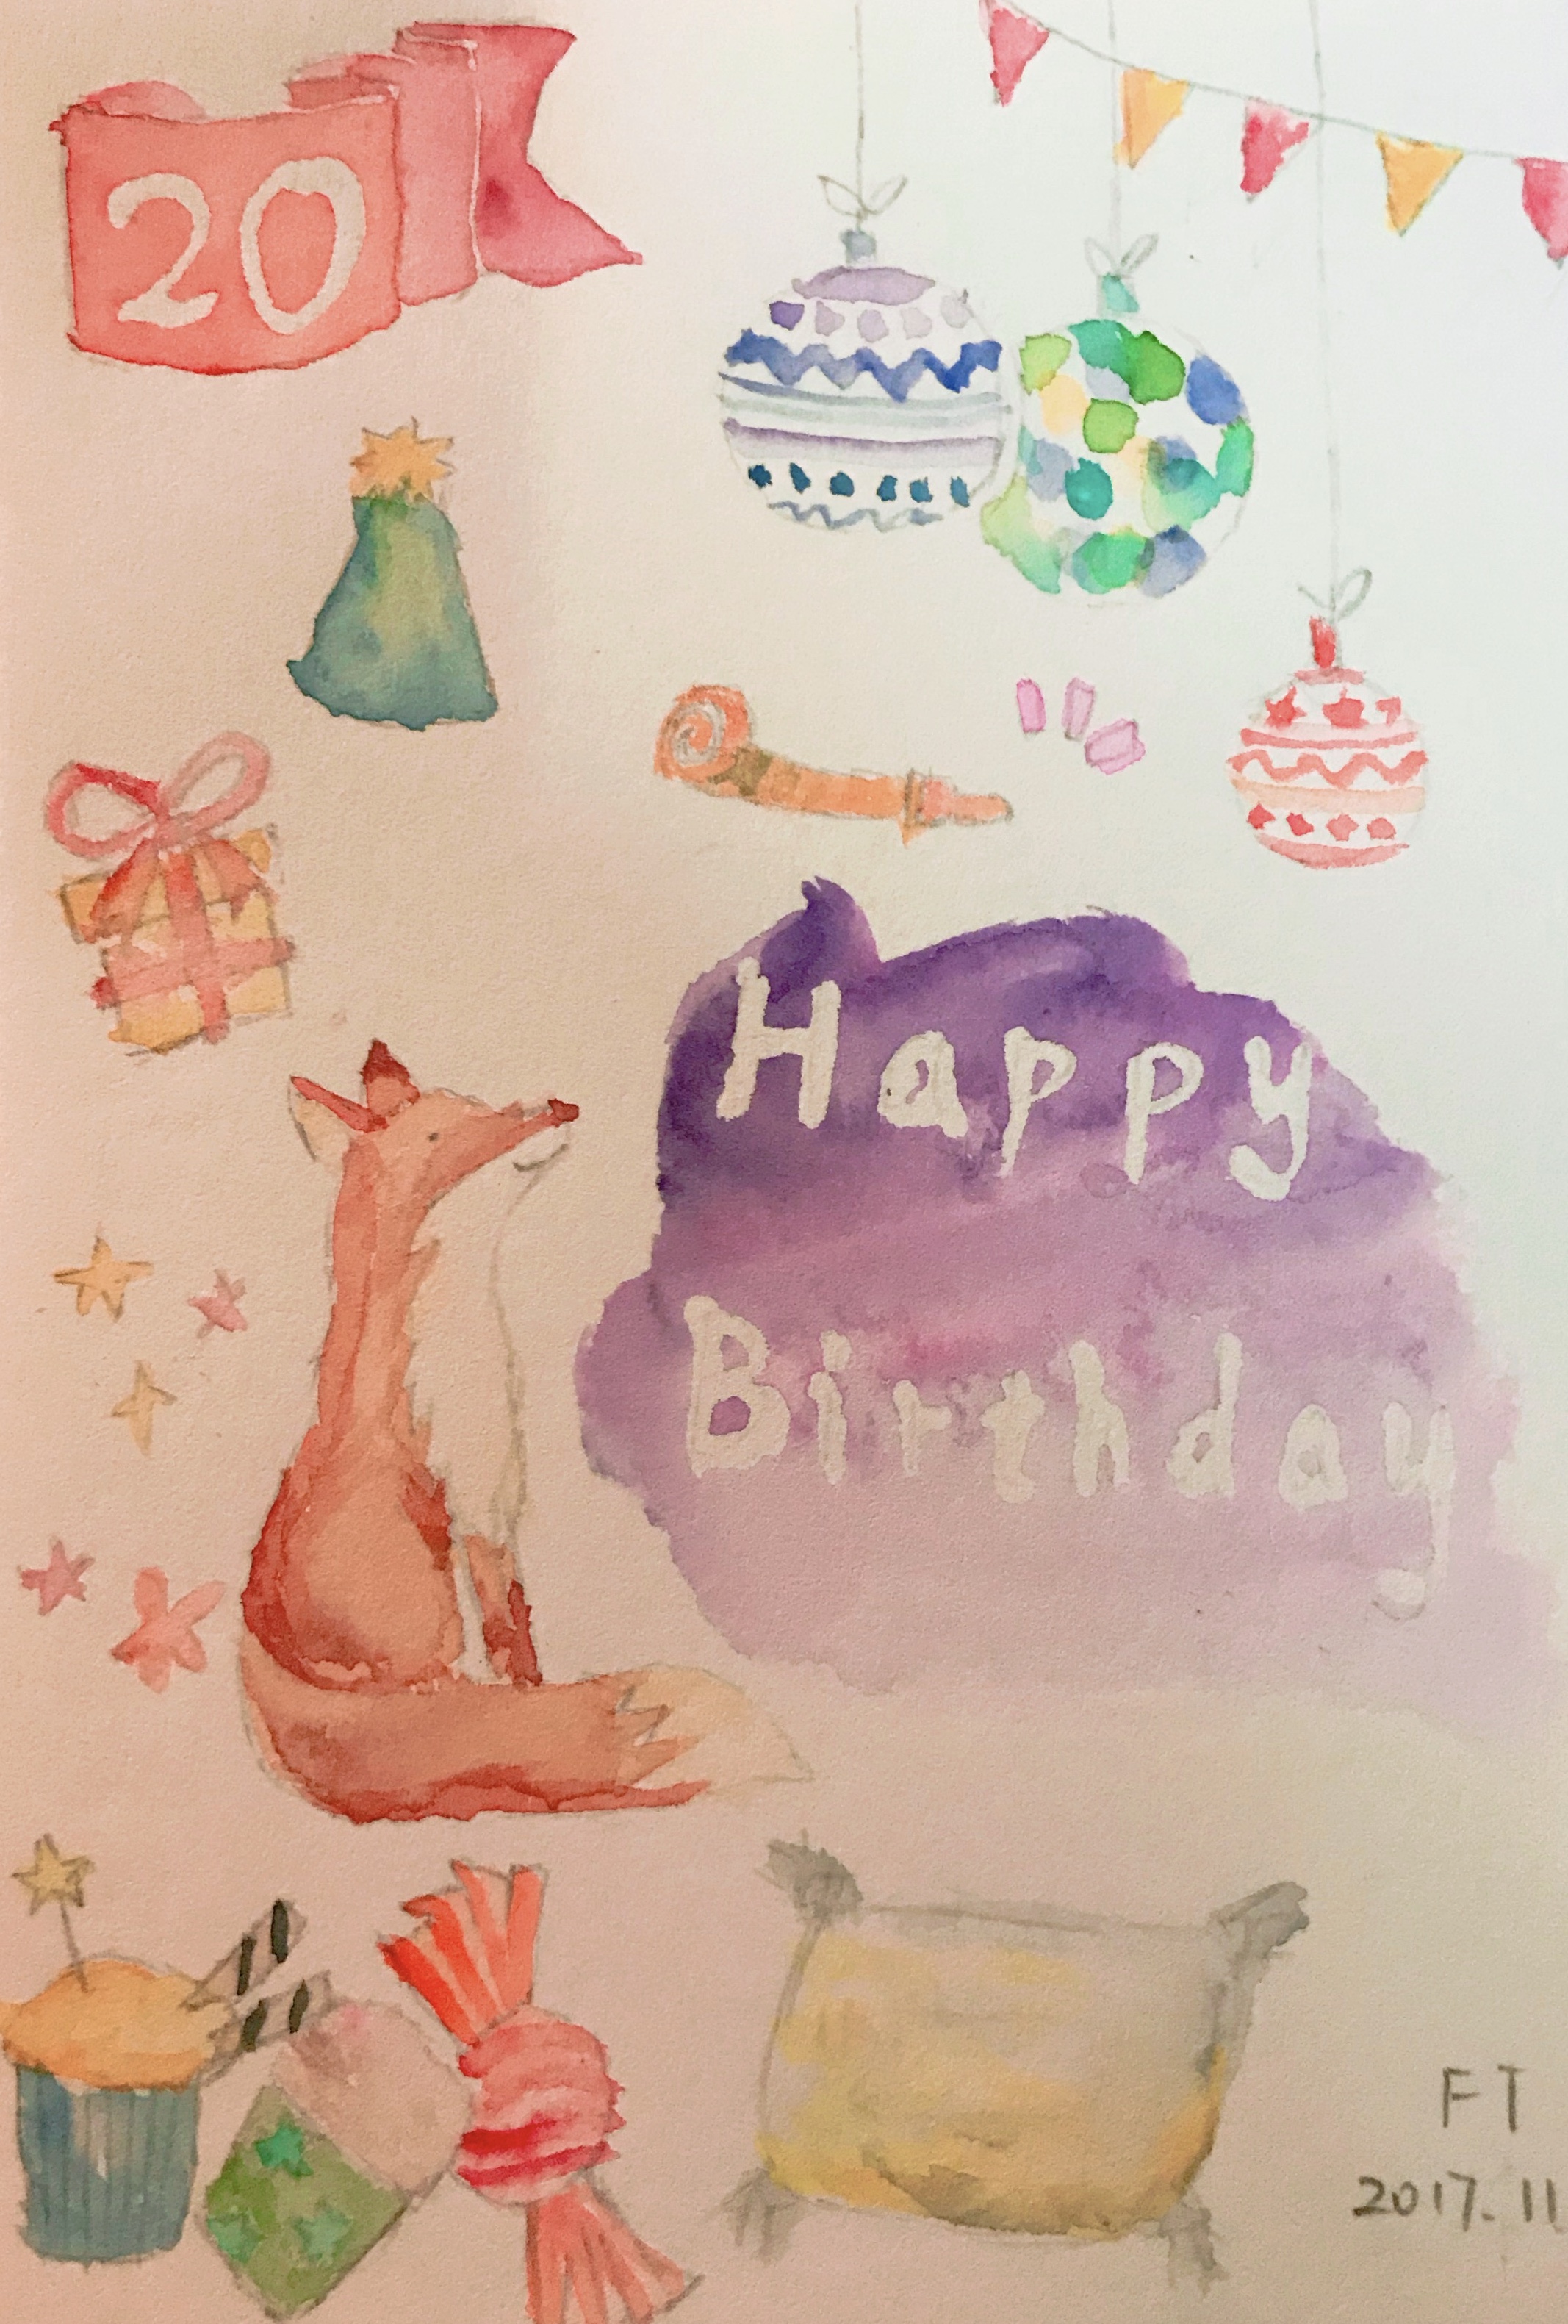 20
Happy
Birthday
FT
2017.11